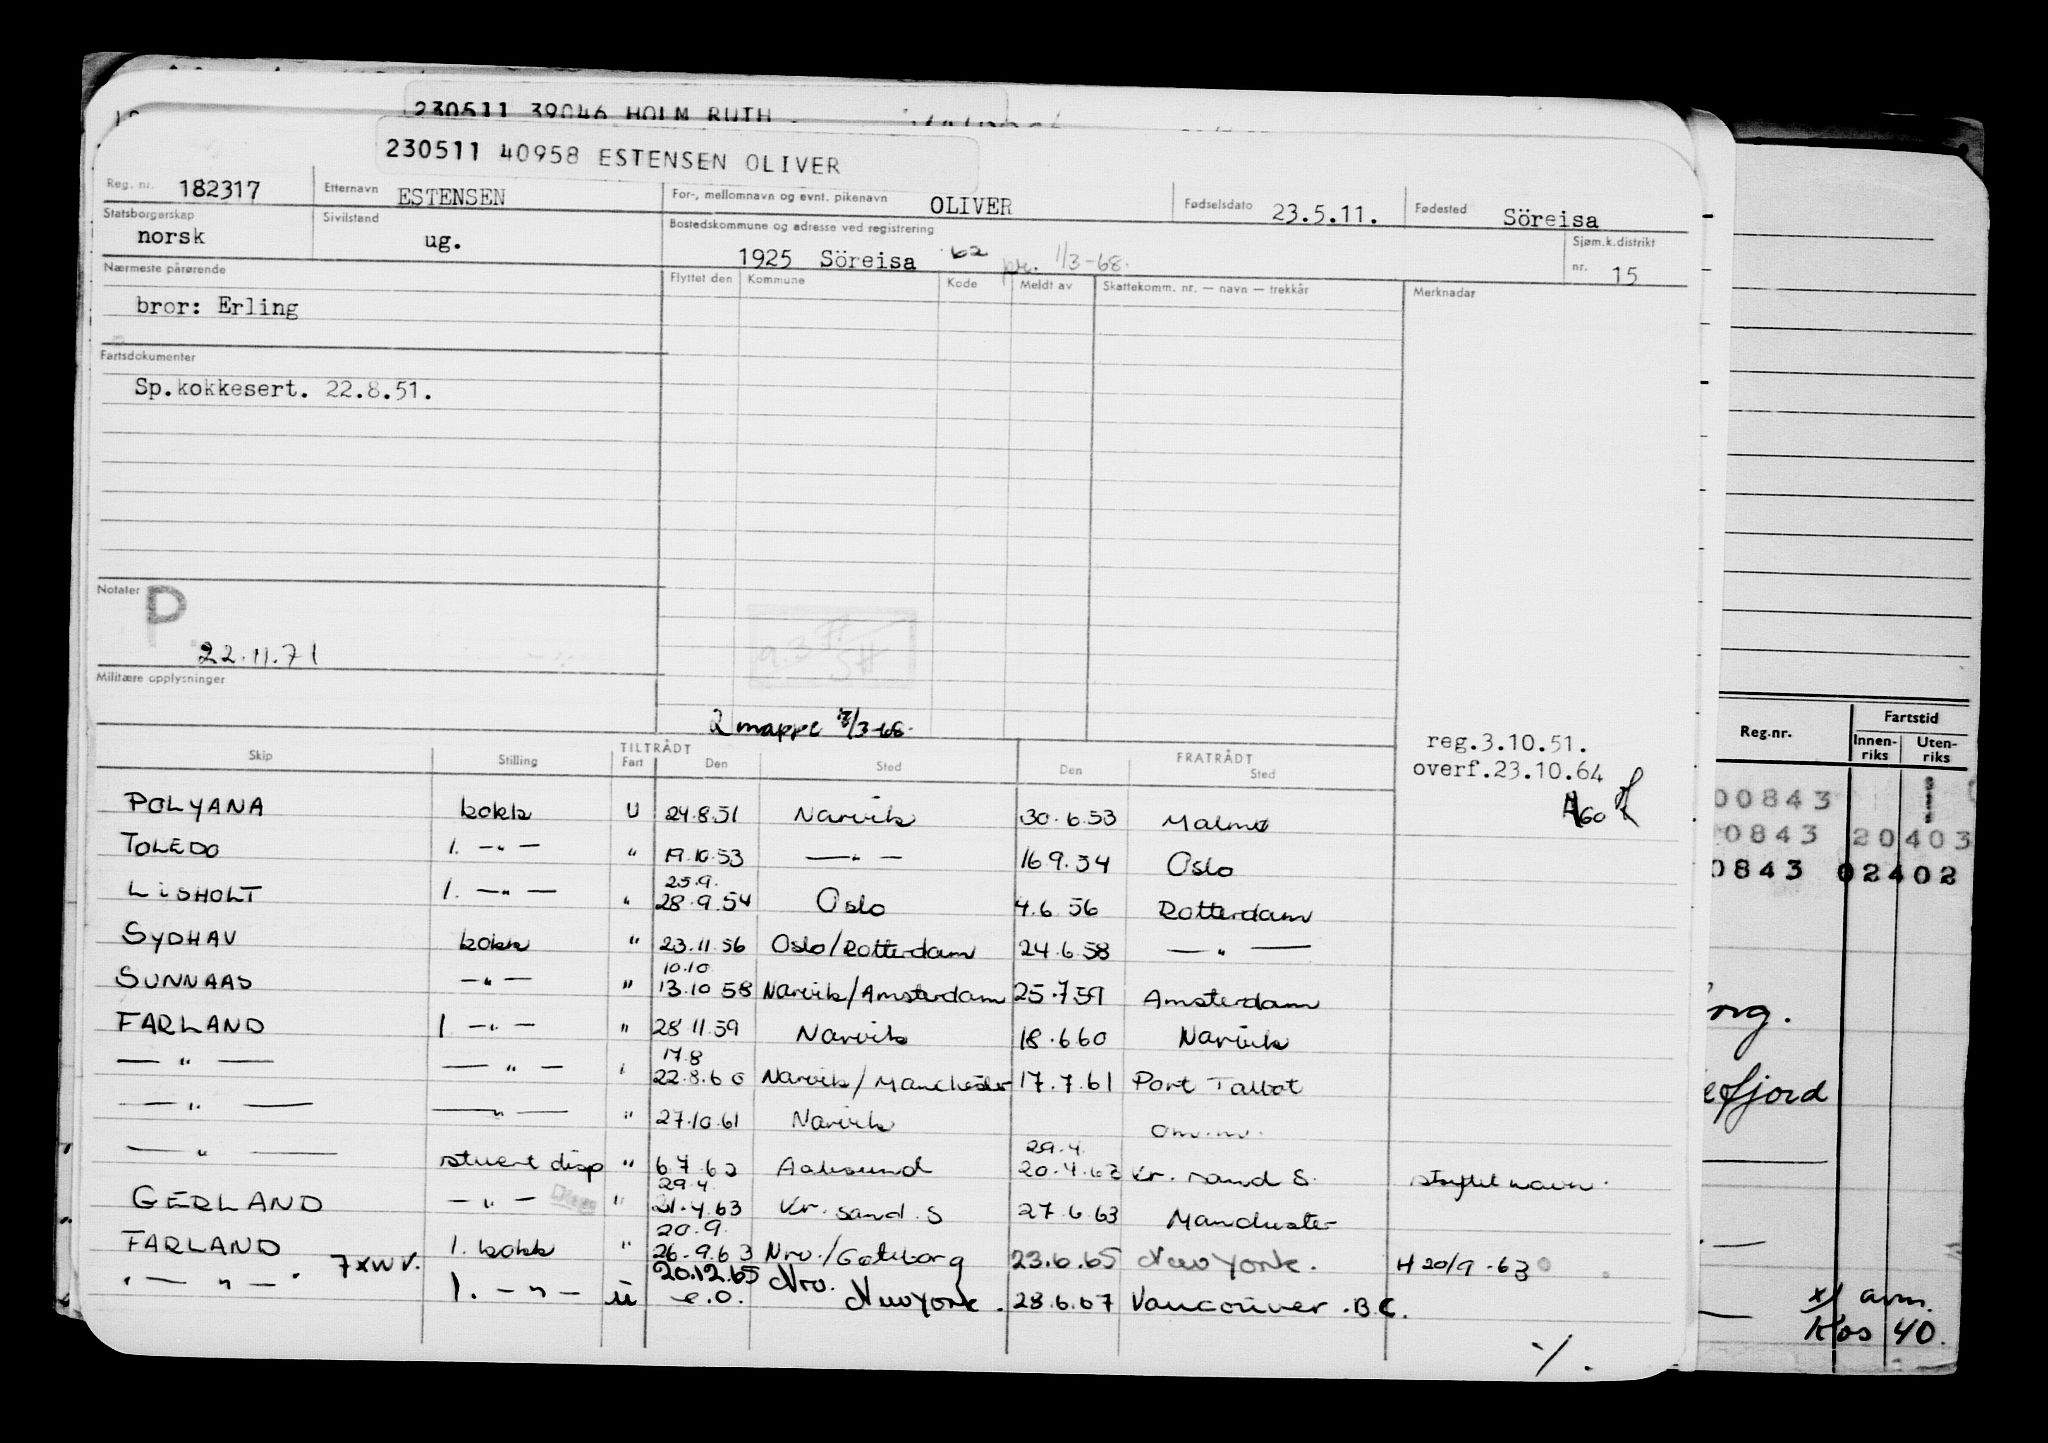 230511 39046 HOLM RUTH
230511 40958 ESTENSEN OLIVER
Reg. nr. 182317 Etternavn ESTENSEN For-, mellomnavn og evnt. pikenavn OLIVER Fødselsdato 23.5.11. Fødested Söreisa
Statsborgerskap norsk Sivilstand ug. Bostedskommune og adresse ved registrering 1925 Söreisa 62 pr. 1/3-68. Sjøm.k.distrikt nr. 15
Nærmeste pårørende Flyttet den Kommune Kode Meldt av Skattekomm. nr. — navn — trekkår Merknadar
bror: Erling
Fartsdokumenter
Sp.kokkesert. 22.8.51.
Notater P.
22.11.71
Militære opplysninger
2 mappe 7/3-68.
reg.3.10.51.
overf.23.10.64
A60
TILTRÅDT FRATRÅDT
Skip Stilling Fart Den Sted Den Sted
POLYANA kokk U 24.8.51 Narvik 30.6.53 Malmø
TOLEDO 1. —„— " 19.10.53 —„— 16.9.54 Oslo
25.9.
LISHOLT 1. —„— " 28.9.54 Oslo 4.6.56 Rotterdam
SYDHAV kokk " 23.11.56 Oslo/Rotterdam 24.6.58 —„—
10.10
SUNNAAS —„— " 13.10 58 Narvik/Amsterdam 25.7.59 Amsterdam
FARLAND 1 —„— " 28 11.59 Narvik 18.6.60 Narvik
17.8
—„— —„— " 22.8.60 Narvik/Manchester 17.7.61 Port Talbot
—„— —„— " 27.10.61 Narvik om.m.
29.4.
—„— stuert disp " 6 7 62 Aalesund 20.4.63 Kr. sand S. skiftet navn.
29.4.
GERLAND —„— " 21.4.63 Kr. sand. S 27.6.63 Manchester
20.9.
FARLAND 1. kokk " 26.9.63 Nrv./Göteborg 23.6.65 New York. H 20/9.63
7xNV.
—„— 1. —„— ü 20.12.65 Nrv.
e.o. New York. 28.6.67 Vancouver.B.C.
·/.
Reg.nr. Fartstid
Innen-riks Uten-riks
00843
0843 20403
0843 02402
org.
efjord
x/ avm.
Kos 40.